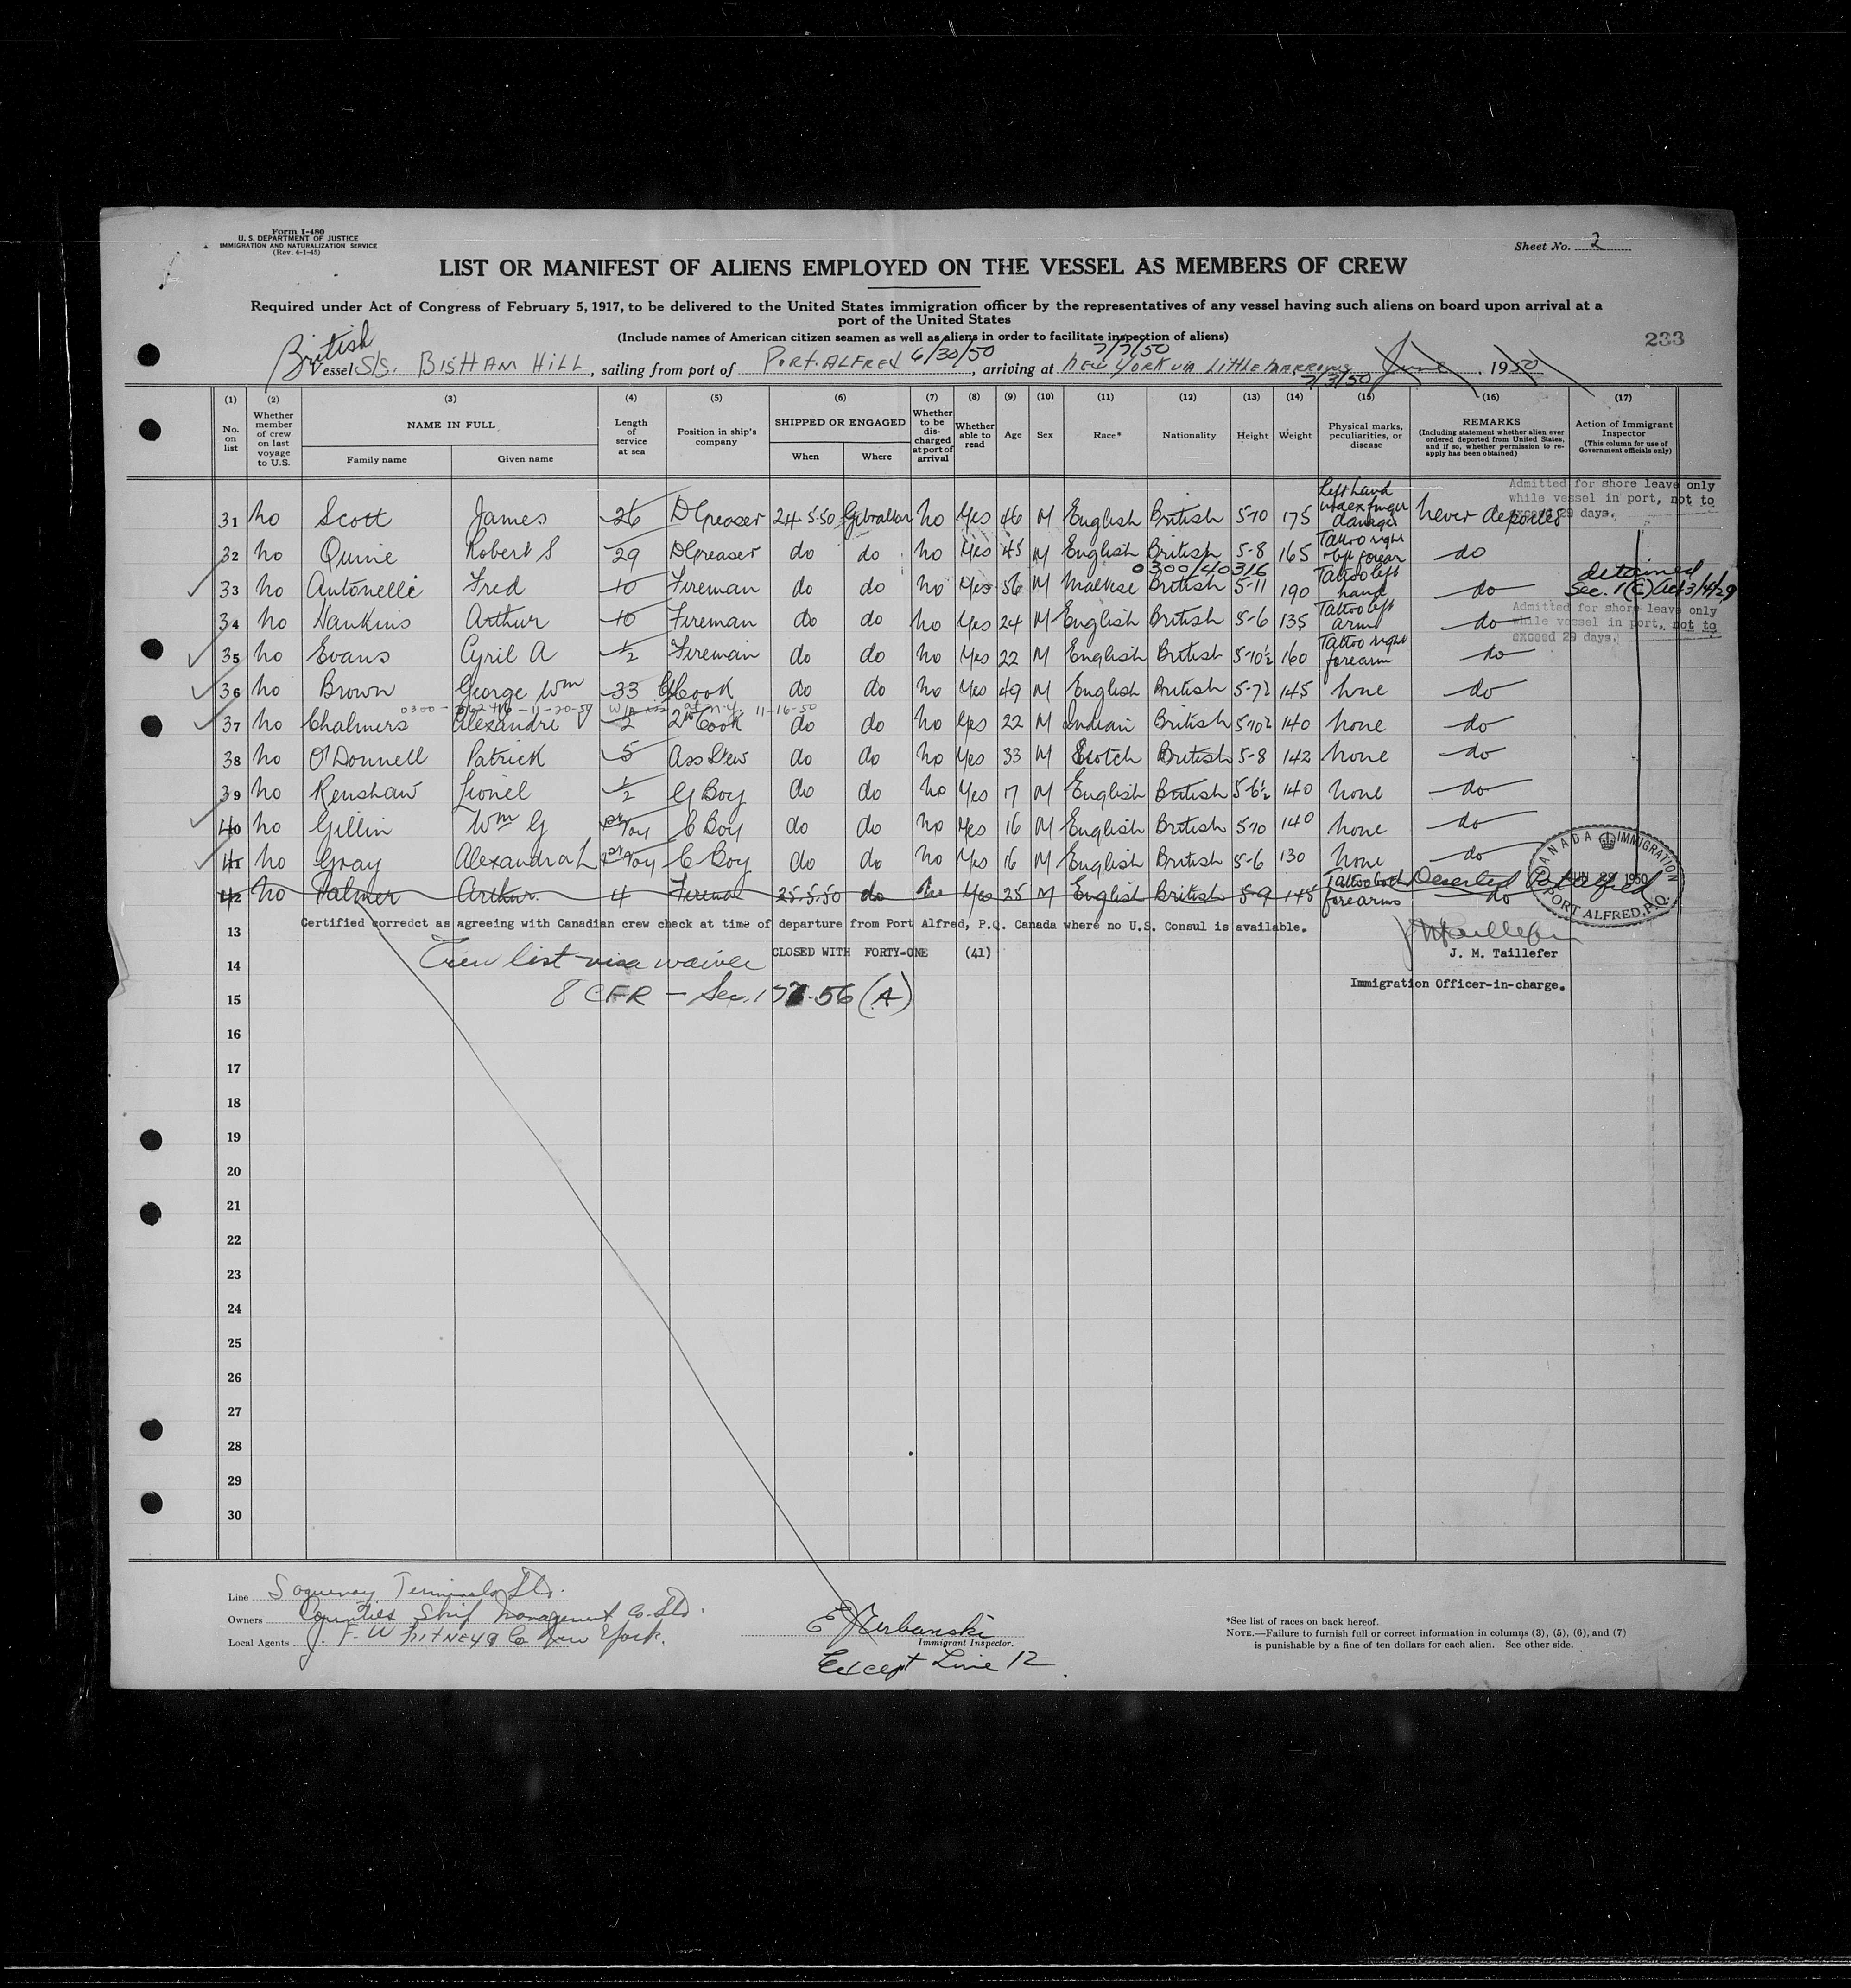 Form I-480
U. S. DEPARTMENT OF JUSTICE
IMMIGRATION AND NATURALIZATION SERVICE
(Rev. 4-1-45)
Sheet No. 2
LIST OR MANIFEST OF ALIENS EMPLOYED ON THE VESSEL AS MEMBERS OF CREW
Required under Act of Congress of February 5, 1917, to be delivered to the United States immigration officer by the representatives of any vessel having such aliens on board upon arrival at a
port of the United States
(Include names of American citizen seamen as well as aliens in order to facilitate inspection of aliens)
233
British 6/30/50 7/7/50
Vessel S/S. BISHAM HILL, sailing from port of PORT. ALFRED, arriving at NEW YORK VIA LITTLE NARROWS June 1950
7/3/50
(1) (2) (3) (4) (5) (6) (7) (8) (9) (10) (11) (12) (13) (14) (15) (16) (17)
No. on list
Whether member of crew on last voyage to U.S.
NAME IN FULL
Family name Given name
Length of service at sea
Position in ship's company
SHIPPED OR ENGAGED
When Where
Whether to be discharged at port of arrival
Whether able to read
Age
Sex
Race*
Nationality
Height
Weight
Physical marks, peculiarities, or disease
REMARKS
(Including statement whether alien ever ordered deported from United States, and if so, whether permission to re-apply has been obtained)
Action of Immigrant Inspector
(This column for use of Government officials only)
Admitted for shore leave only
while vessel in port, not to
exceed 29 days.
31 no Scott James 26 D Greaser 24 5-50 Gibraltar no Yes 46 M English British 5-10 175 Left hand index finger damage never deported
32 no Quine Robert S 29 D Greaser do do no Yes 45 M English British 5-8 165 Tattoo right left forear do
0300/40316
33 no Antonelli Fred 10 Fireman do do no Yes 56 M Maltese British 5-11 190 Tattoo left hand do detained Sec. 1(C) Act 3/4/29
34 no Hankins Arthur 10 Fireman do do no Yes 24 M English British 5-6 135 Tattoo left arm do
Admitted for shore leave only
while vessel in port, not to
exceed 29 days.
35 no Evans Cyril A 1/2 Fireman do do no Yes 22 M English British 5-10½ 160 Tattoo right forearm do
36 no Brown George Wm 33 Cook do do no Yes 49 M English British 5-7½ 145 none do
11-20-50 at N.Y. 11-16-50
37 no Chalmers Alexandre 2 2nd Cook do do no Yes 22 M Indian British 5-10½ 140 none do
38 no O'Donnell Patrick 5 Ass Stew do do no Yes 33 M Scotch British 5-8 142 none do
39 no Renshaw Lionel 1/2 G Boy do do no Yes 17 M English British 5-6½ 140 none do
40 no Gillin Wm G 1st Voy C Boy do do no Yes 16 M English British 5-10 140 none do
41 no Gray Alexandra L 1st Voy C Boy do do no Yes 16 M English British 5-6 130 none do
42 no Palmer Arthur 4 Fireman 25.5.50 do no Yes 25 M English British 5-9 145 Tattoo both forearms do Deserted Pt Alfred
CANADA IMMIGRATION
JUN 29 1950
PORT ALFRED, P.Q.
Certified corredct as agreeing with Canadian crew check at time of departure from Port Alfred, P.Q. Canada where no U.S. Consul is available.
13
CLOSED WITH FORTY-ONE (41)
J. M. Taillefer
Immigration Officer-in-charge.
14 Crew list visa waive
15 8 CFR - Sec. 177.56 (A)
16
17
18
19
20
21
22
23
24
25
26
27
28
29
30
Line Saguenay Terminals Ltd.
Owners Counties Ship Management Co. Ltd.
Local Agents J. F. WHITNEY & Co New York.
E Urbanski
Immigrant Inspector.
Except Line 12
*See list of races on back hereof.
NOTE.—Failure to furnish full or correct information in columns (3), (5), (6), and (7)
is punishable by a fine of ten dollars for each alien. See other side.